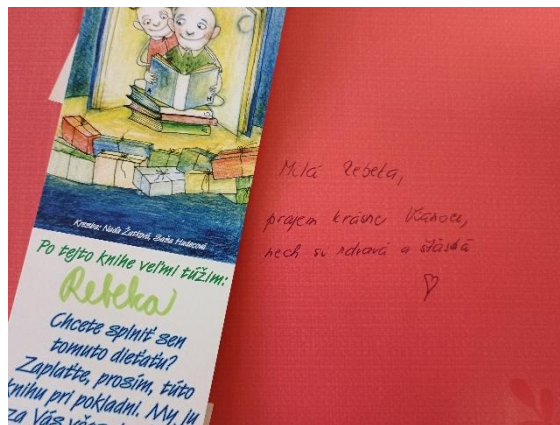 Kresba: Naďa Žatková, Saňa Hadecová
Po tejto knihe veľmi túžim:
Rebeka
Chcete splniť sen
tomuto dieťaťu?
Zaplaťte, prosím, túto
knihu pri pokladni. My ju
za Vás
Milá Rebeka,
prajem krásne Vianoce,
nech si zdravá a šťastná